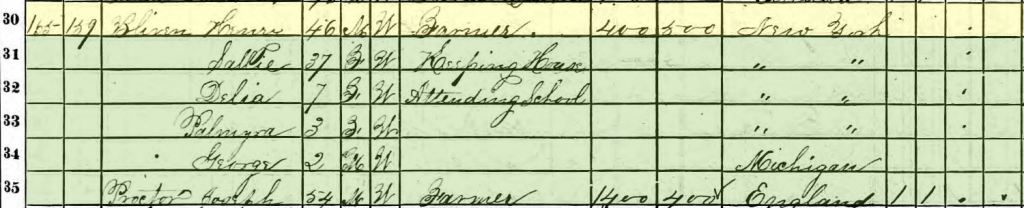 30 155 159 Bliven Henri 46 M W Farmer. 400 500 New York
31 Sallie 37 F W Keeping House " "
32 Delia 7 F W Attending School " "
33 Palmyra 3 F W " "
34 George 2 M W Michigan
35 Proctor Joseph 54 M W Farmer 1400 400 England 1 1